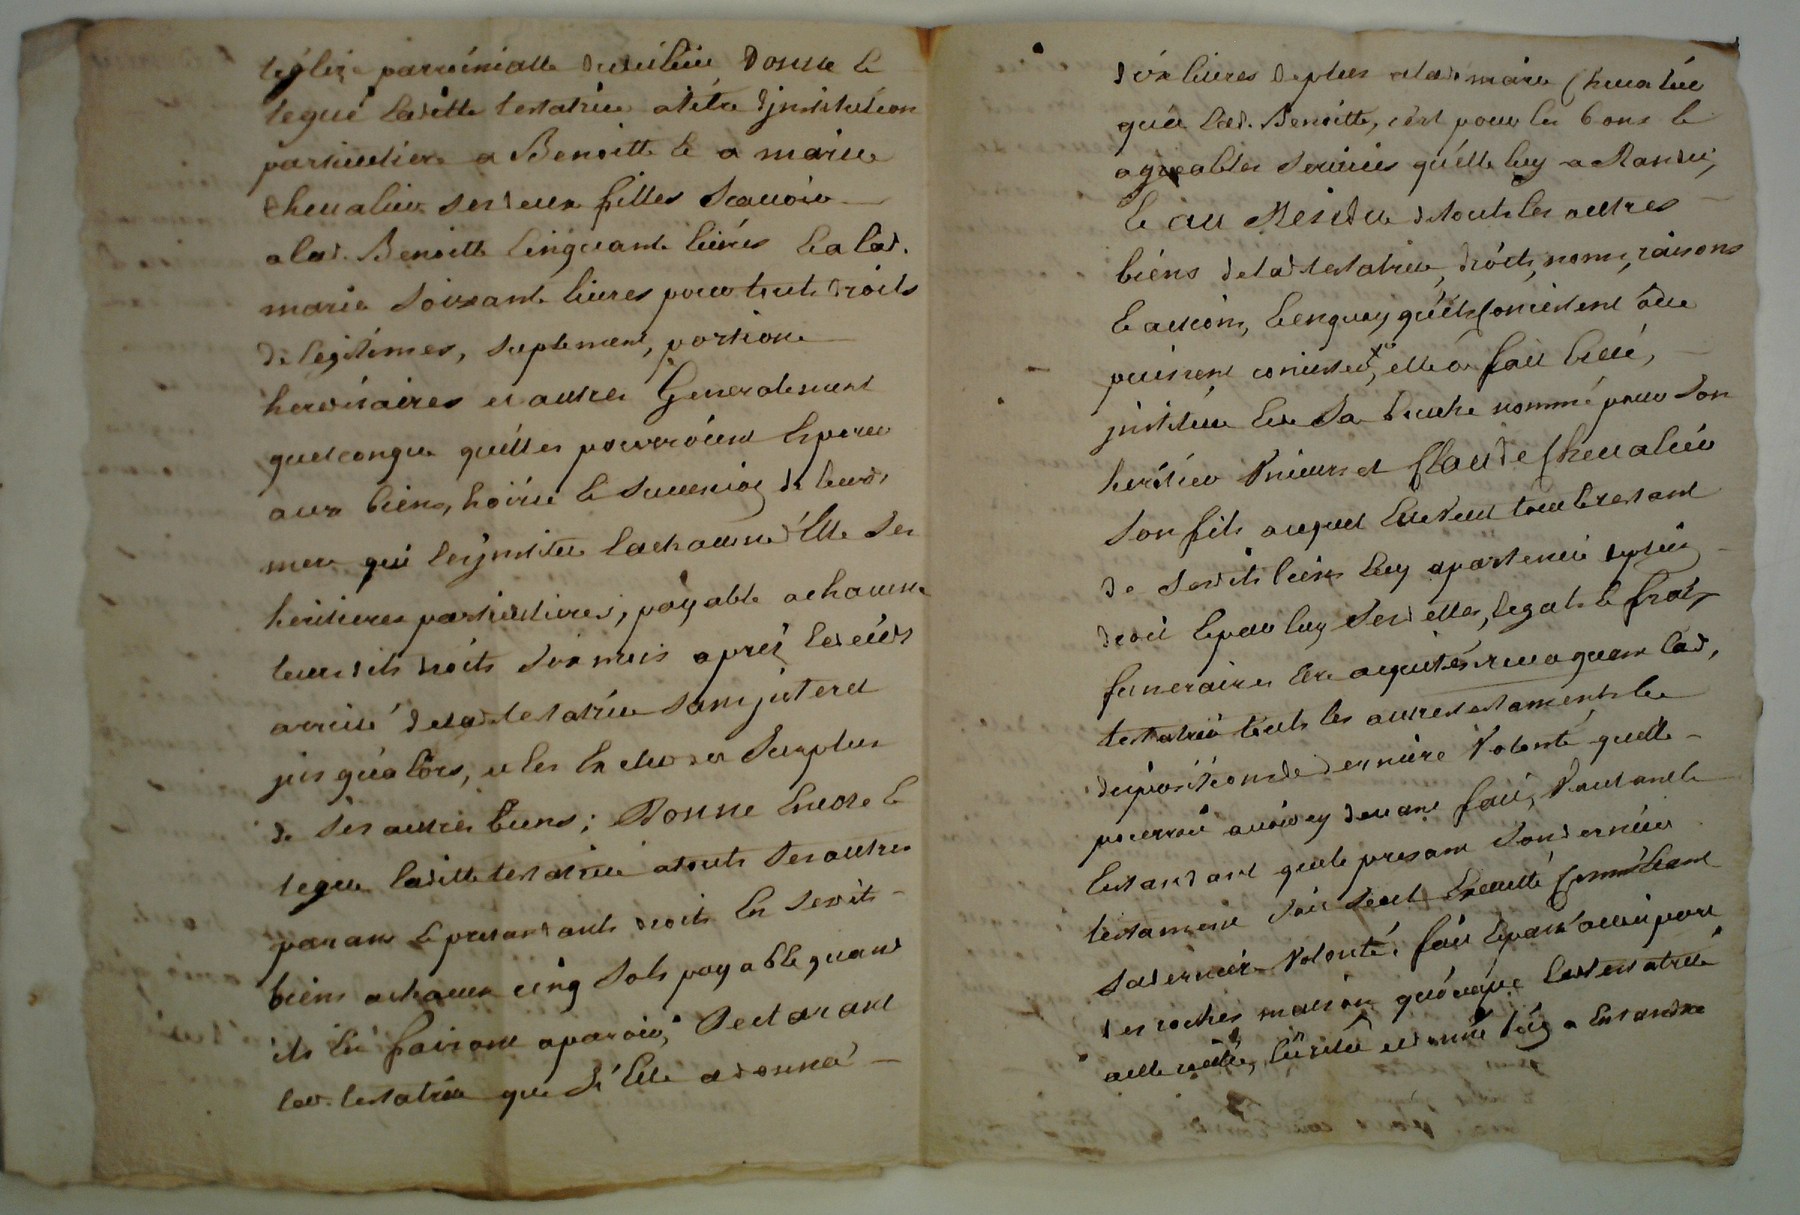 l'église parroissialle dudit lieu Donne &
legue laditte testatrice a titre d'jnstitution
particuliere a Benoitte & a marie
chevalier ses deux filles Scavoir
a lad. Benoitte Cinquante livres Ea lad.
marie Soixante livres pour touts droits
de legitimes, suplement, portion
hereditaires et autres Generalement
quelconque qu'elles pourroient Esperer
aux biens, hoirie & Succession de leurd.
mere qui les jnstitue Eachacune d'Elle Ses
heritieres particulieres, payable a chacune
leursdits droits Six mois après le déces
arrivé de lad. testatrice Sans jnterest
jusqu'alors, et les Exclud du Surplus
de Ses autres biens; Donne Encore &
legue laditte testatrice a touts Ses autres
parans & pretandants droits En Sesdits
biens a chacun cinq Sols payable quand
ils En fairont aparoir, Declarant
lad. testatrice que Si Elle a donné
dix livres de plus a lad. marie Chevalier
qu'a lad. Benoitte, c'est pour les bons &
agreables Services qu'elle luy a Randu,
E au Residu de touts les autres
biens de lad. testatrice, droits, noms, raisons
E actions, En quoy qu'ils Consistent ou
puissent consister, elle a fait Créé,
jnstitué Eu de Sa bouche nommé pour Son
heritier Vniversel Claude Chevalier
Son fils auquel Elle Veut tout le restant
de Sesdits biens luy apartenir de plein
droit Epar luy Ses dettes, legats & frais
funeraires Etre aquités revoquant lad.
testatrice touts les autres testaments &
dispositions de derniere Volonté quelle
pourroit avoir cy devant fait, Voulant &
Entandant que le presant Son dernier
testament Soit Seul Executé Contenant
Sa derniere Volonté, fait Epassé aud.
des roches maison qu'occupe lad. testatrice